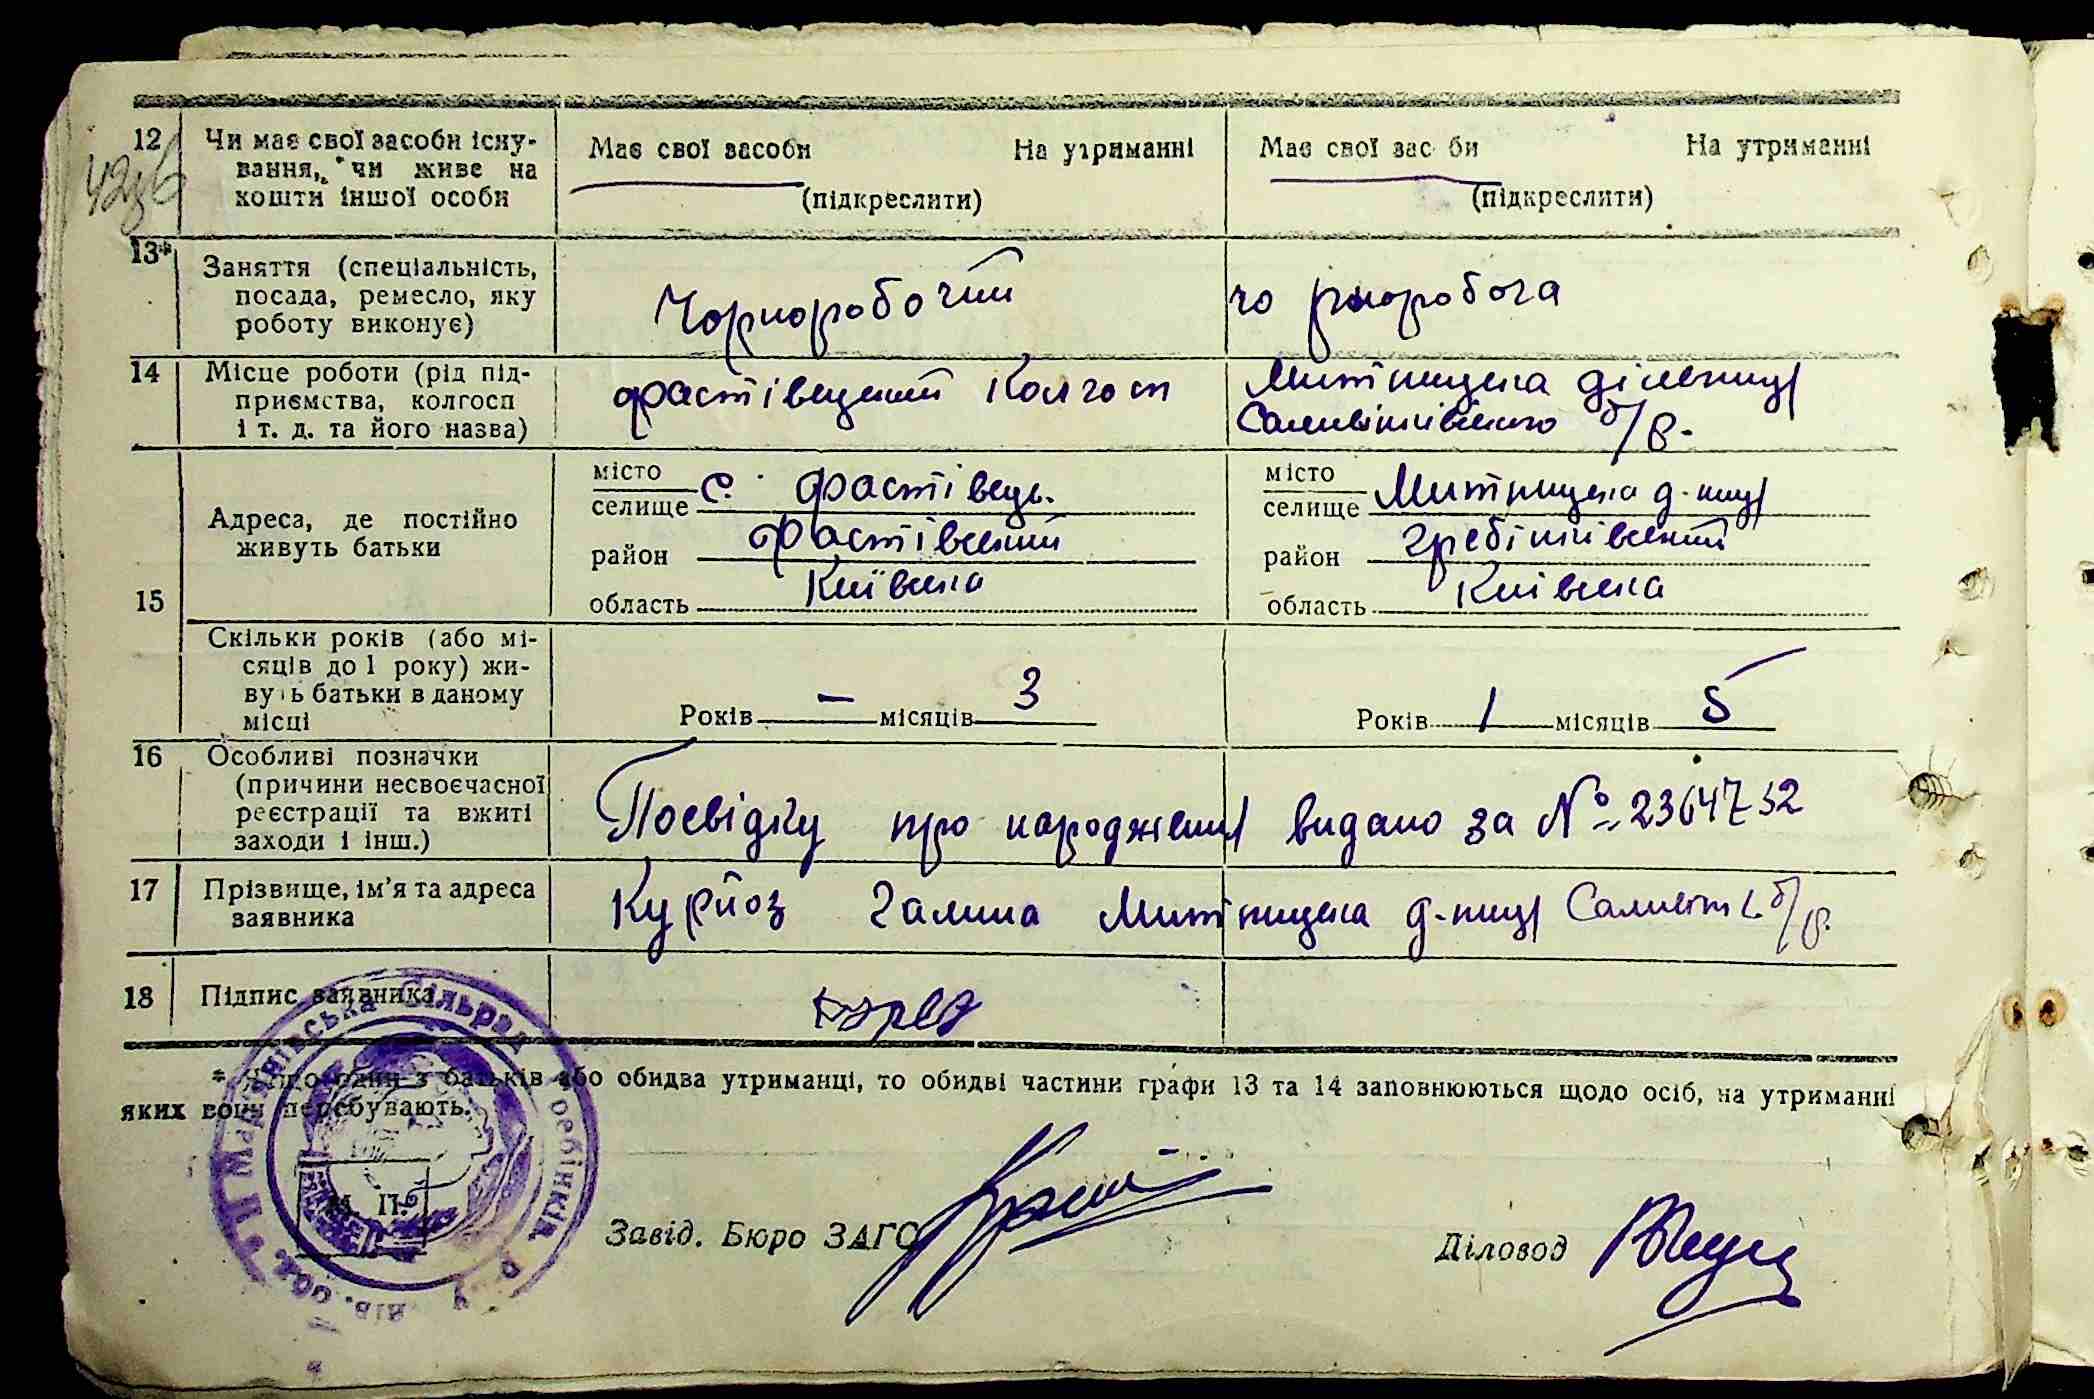 12 Чи має свої засоби існу-
вання, чи живе на
кошти іншої особи
Має свої засоби На утриманні
(підкреслити)
Має свої зас би На утриманні
(підкреслити)
13* Заняття (спеціальність,
посада, ремесло, яку
роботу виконує)
Чорноробочий
чорноробоча
14 Місце роботи (рід під-
приємства, колгосп
і т. д. та його назва)
Фастівецький Колгосп
Митницька дільниця
б/в.
15 Адреса, де постійно
живуть батьки
місто
селище с. Фастівець.
район Фастівський
область Київська
місто
селище Митницька д-ниця
район Гребінківський
область Київська
Скільки років (або мі-
сяців до 1 року) жи-
вуть батьки в даному
місці
Років — місяців 3
Років 1 місяців 5
16 Особливі позначки
(причини несвоєчасної
реєстрації та вжиті
заходи і інш.)
Посвідку про народження видано за № 2364732
17 Прізвище, ім'я та адреса
заявника
Курйоз Галина Митницька д-ниця б/в.
18 Підпис заявника
* Якщо один з батьків або обидва утриманці, то обидві частини графи 13 та 14 заповнюються щодо осіб, на утриманні
яких вони перебувають.
М. П.
Завід. Бюро ЗАГС
Діловод